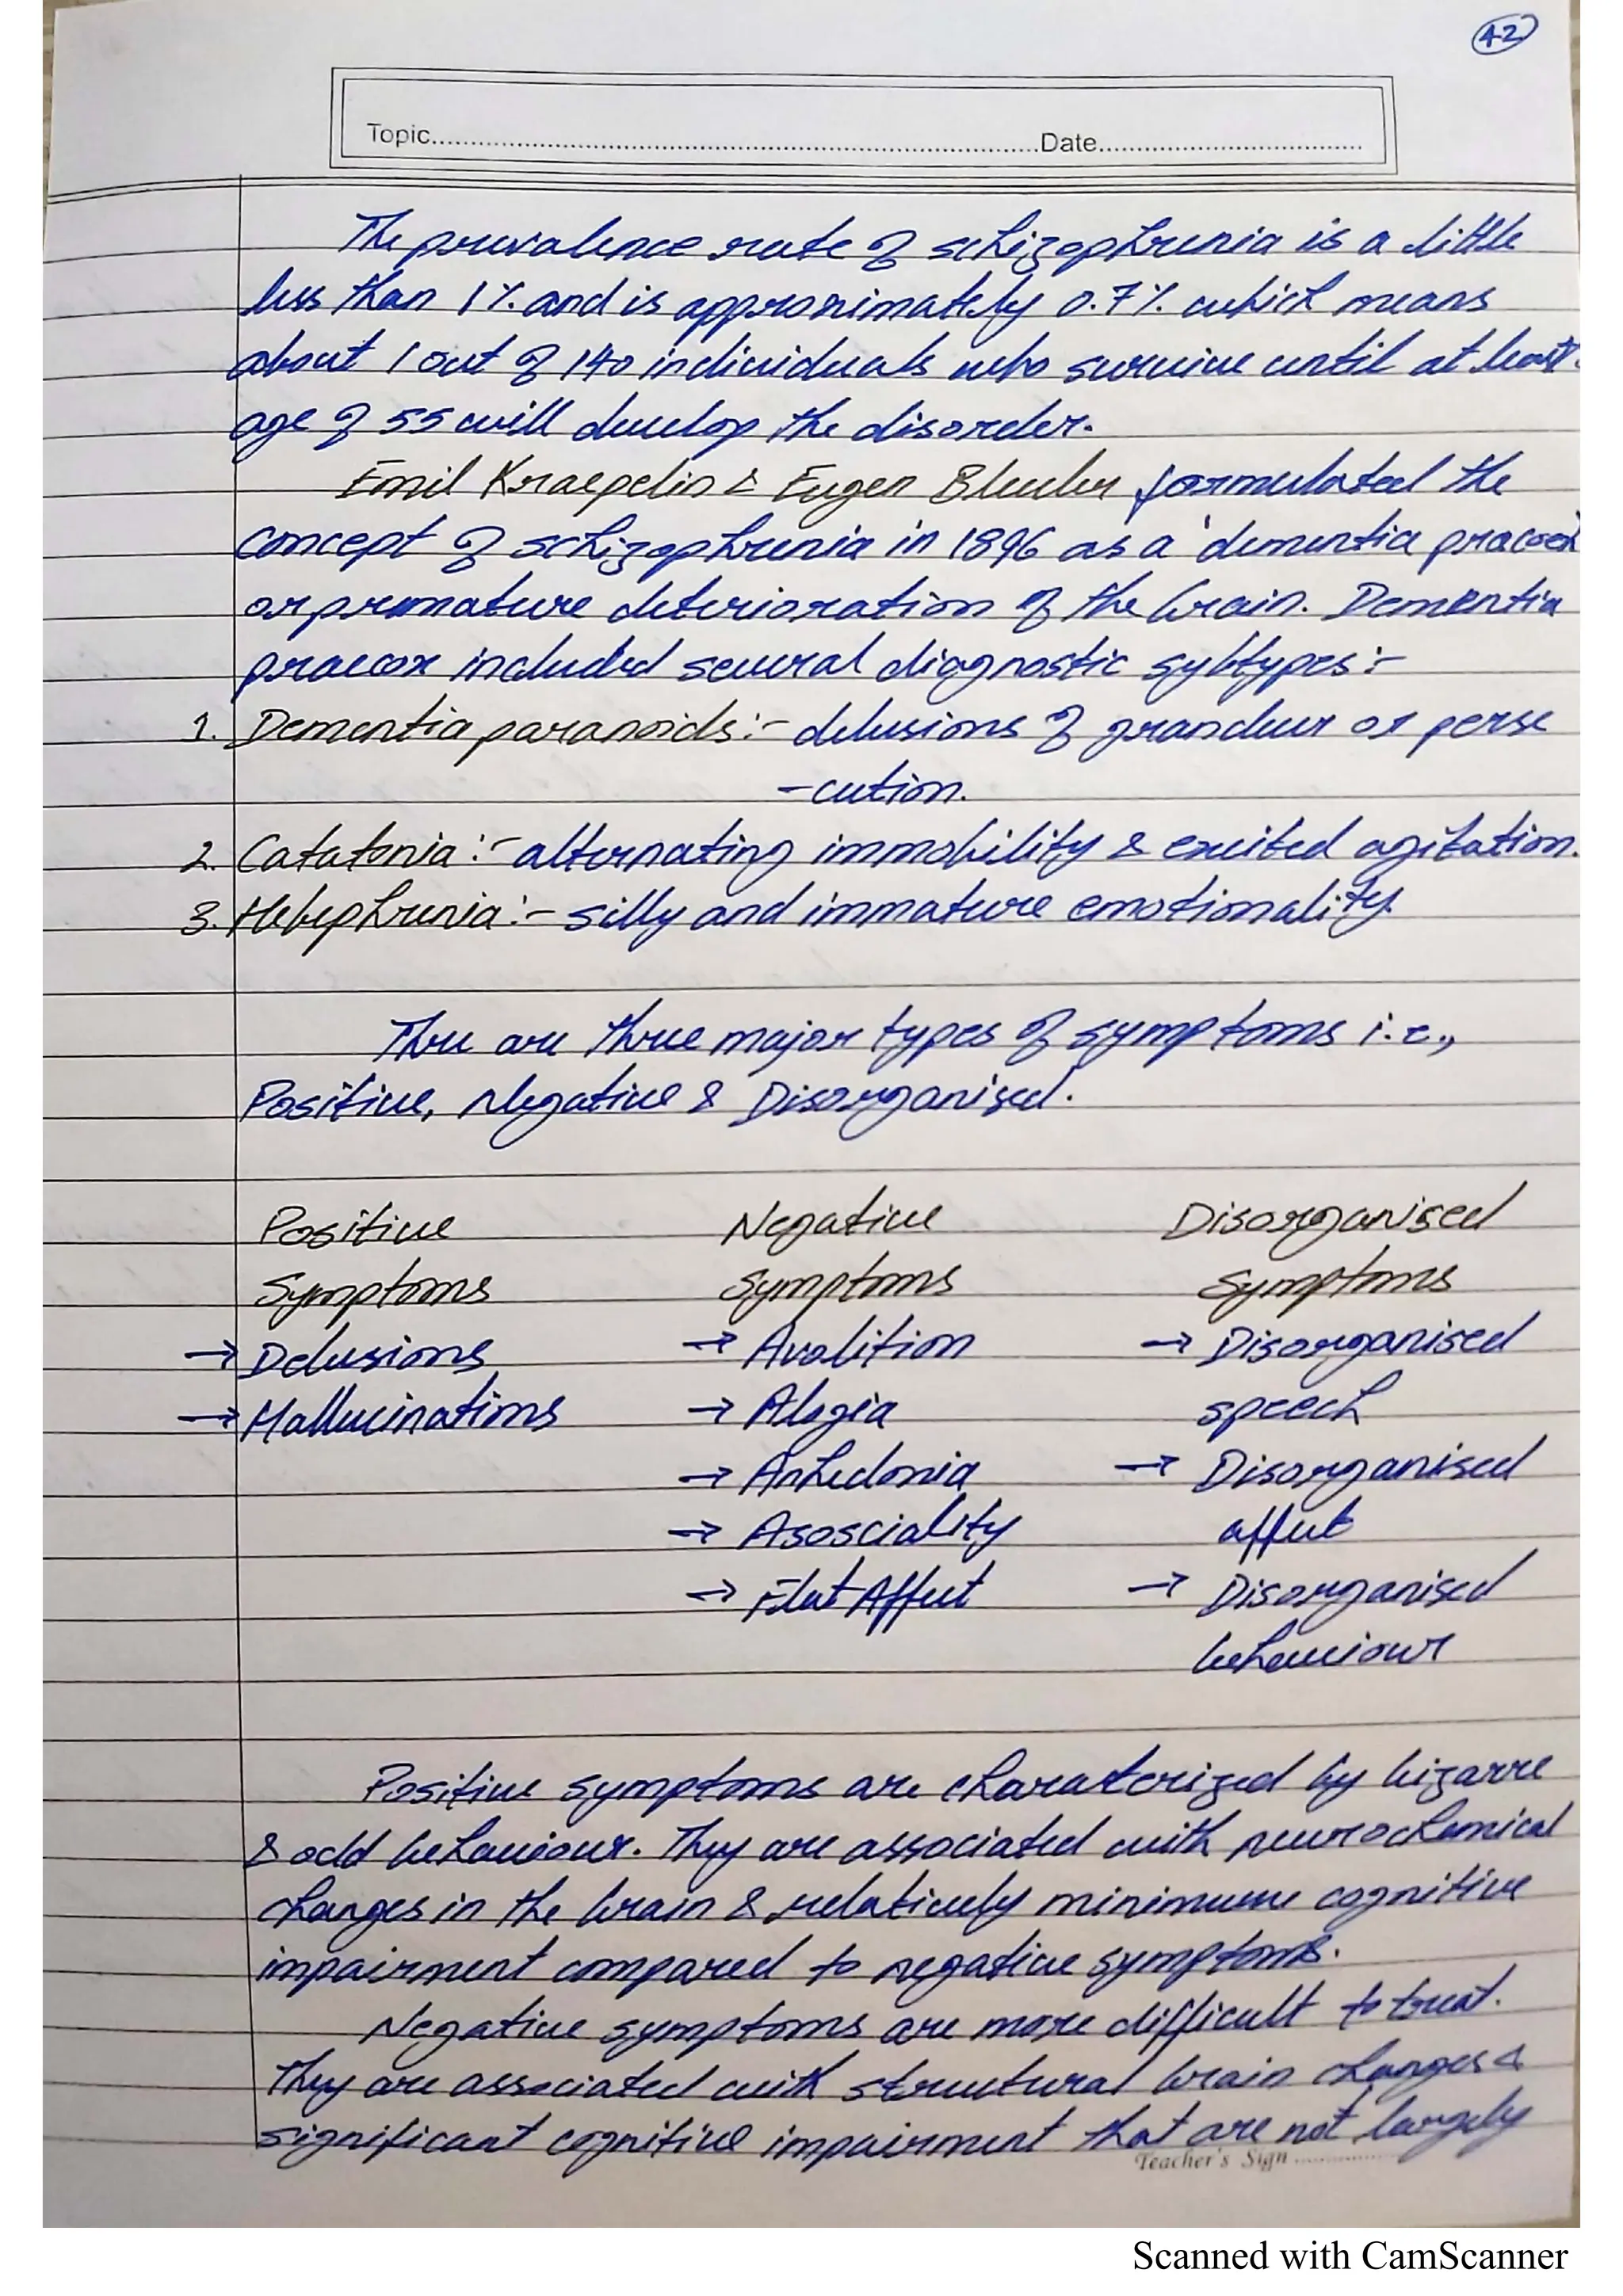 42
Topic..........Date..........
The prevalence rate of schizophrenia is a little
less than 1% and is approximately 0.7% which means
about 1 out of 140 individuals who survive until at least
age of 55 will develop the disorder.
Emil Kraepelin & Eugen Bleuler formulated the
concept of schizophrenia in 1896 as a 'dementia praecox
or premature deterioration of the brain. Dementia
praecox included several diagnostic sybtypes:-
1. Dementia paranoids:- delusions of grandeur or perse
-cution.
2. Catatonia:- alternating immobility & excited agitation.
3. Hebephrenia:- silly and immature emotionality.
There are three major types of symptoms i.e.,
Positive, Negative & Disorganised.
Positive Negative Disorganised
Symptoms Symptoms Symptoms
→ Delusions → Avolition → Disorganised
→ Hallucinations → Alogia speech
→ Anhedonia → Disorganised
→ Asosciality affect
→ Flat Affect → Disorganised
behaviour
Positive symptoms are charaterized by bizarre
& odd behaviour. They are associated with neurochemical
changes in the brain & relatively minimum cognitive
impairment compared to negative symptoms.
Negative symptoms are more difficult to treat.
They are associated with structural brain changes &
significant cognitive impairment that are not largely
Teacher's Sign ..........
Scanned with CamScanner